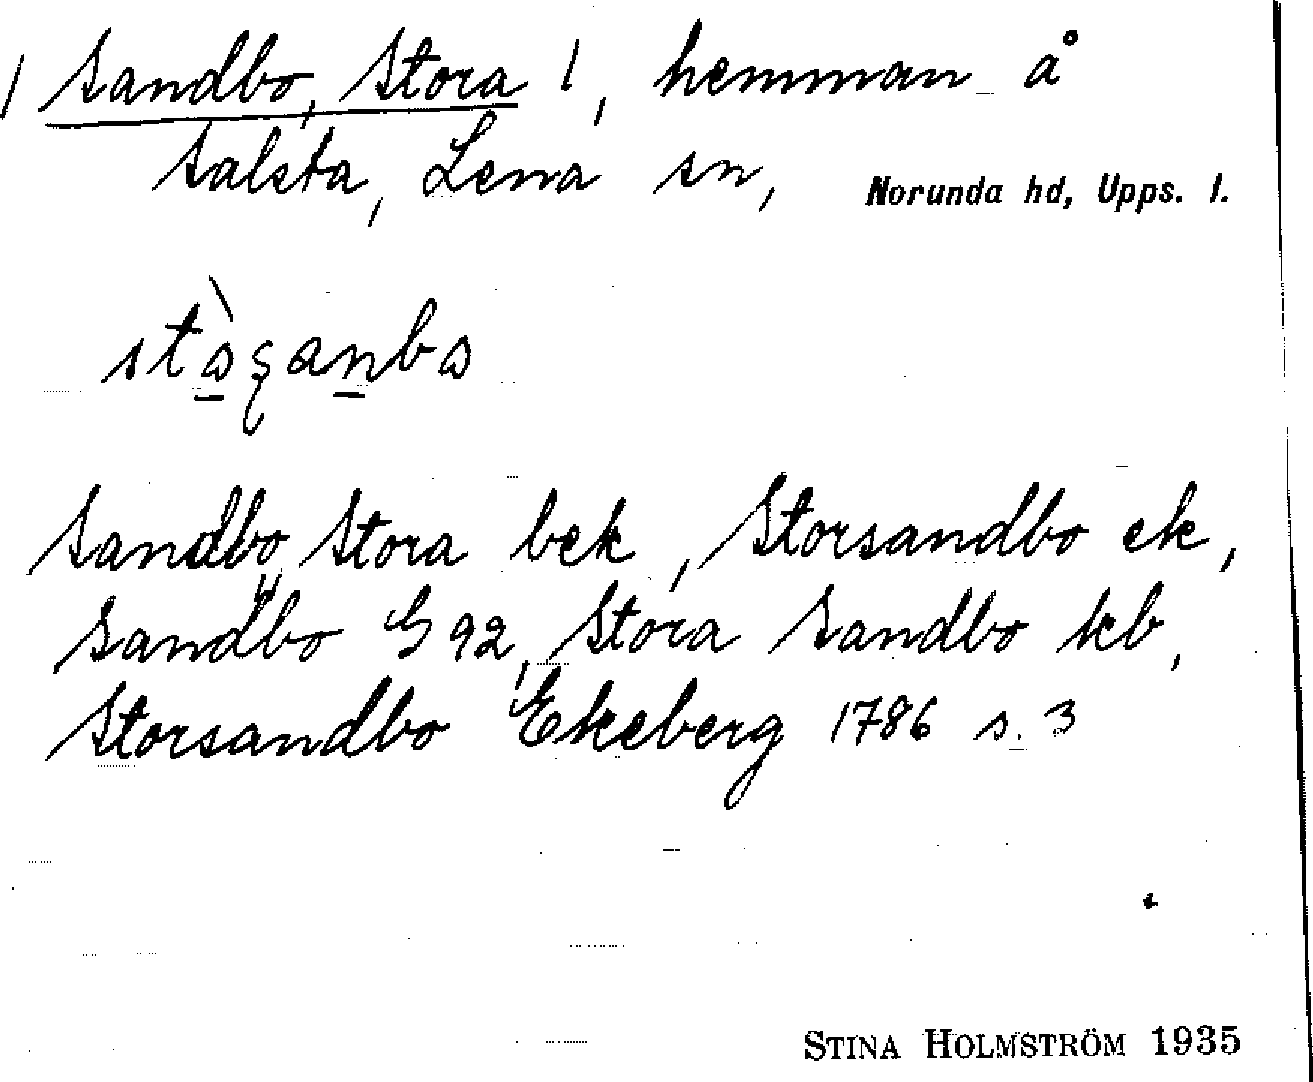 / Sandbo, Stora /, hemman å
Salsta, Lena sn, Norunda hd, Upps. l.
Sandbo, Stora bek, Storsandbo ek,
Sandbo G 92, Stora Sandbo kb,
Storsandbo Ekeberg 1786 s. 3
STINA HOLMSTRÖM 1935